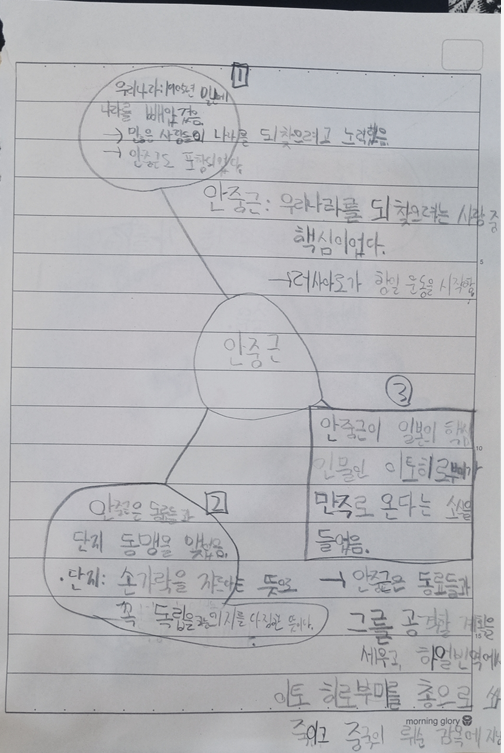 1
우리나라: 1910년 일본에
나라를 빼앗겼음
→ 많은 사람들이 나라를 되찾으려고 노력했음
→ 안중근도 포함되있다.
안중근: 우리나라를 되찾으려는 사람 중
핵심이었다.
→러시아로가 항일 운동을 시작함
안중근
3
안중근이 일본의 핵심
인물인 이토히로부미가
만주로 온다는 소식을
들었음.
→ 안중근은 동료들과
그를 공격할 계획을
세우고, 하얼빈역에서
이토 히로부미를 총으로
죽이고 중국의 뤼순 감옥에
2
안중근은 동료들과
단지 동맹을 맺었음.
·단지: 손가락을 자른다는 뜻으로
꼭 독립을 의지를 다짐한 뜻이다.
morning glory
5
10